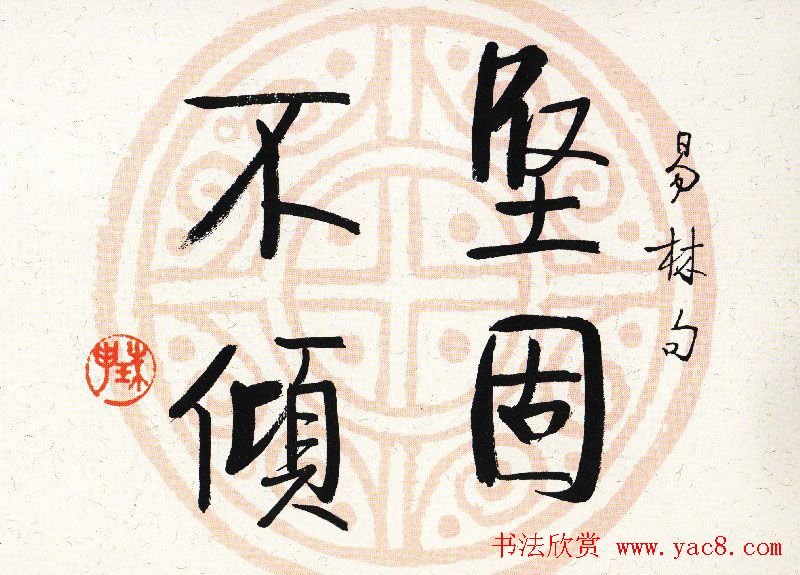 易林句
坚固
不傾
书法欣赏 www.yac8.com